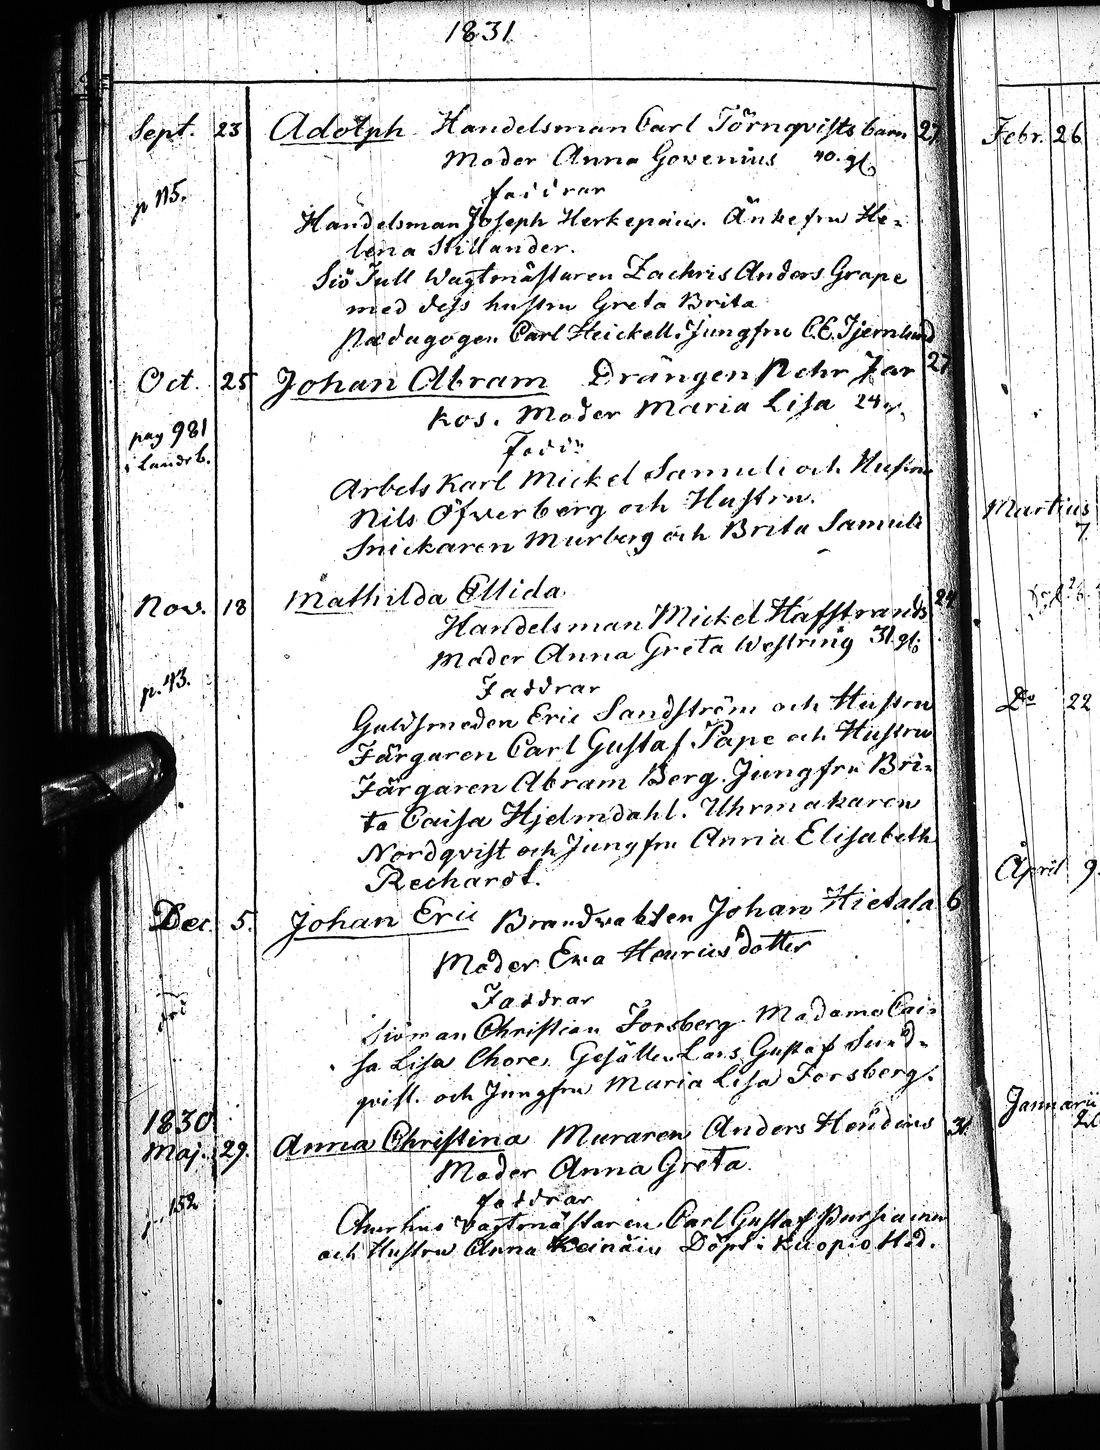 1831
Sept. 23 Adolph Handelsman Carl Törnqvists barn 27
Moder Anna Govenius 40. gl
p 115.
faddrar
Handelsman Joseph Herkepæus. Änkefru He-
lena Stillander.
Siö Tull Wagtmästaren Zachris Anders Grape
med dess hustru Greta Brita
Pædagogen Carl Heickell. Jungfru C.E. Tjernlund
Oct. 25 Johan Abram Drängen Pehr Jar 27
kos. Moder Maria Lisa 24
pag 981
i Landsb.
Fadd:
Arbets Karl Mickel Samuli och Hustru
Nils Öfverberg och Hustru.
Snickaren Murberg och Brita Samuli
Nov. 18 Mathilda Ellida 24
Handelsman Mickel Hafstrands
Moder Anna Greta Westring 31. gl
p. 43.
Faddrar
Guldsmeden Eric Sandström och Hustru
Färgaren Carl Gustaf Pape och Hustru
Färgaren Abram Berg. Jungfru Bri-
ta Caisa Hjelmdahl. Uhrmakaren
Nordqvist och Jungfru Anna Elisabeth
Rechardt.
Dec. 5. Johan Eric Brandvakten Johan Hietala 6
Moder Eva Henricsdotter
Faddrar
Siöman Christian Forsberg Madame Cai-
sa Lisa Gesällen Lars Gustaf Sund-
qvist. och Jungfru Maria Lisa Forsberg.
1830
Maj. 29. Anna Christina Muraren Anders 31.
Moder Anna Greta.
152
faddrar
Vagtmästaren Carl Gustaf
och Hustru Anna Döpt i Kuopio Stad.
Febr. 26
Martius
7
Do 22
April 9.
Januarii